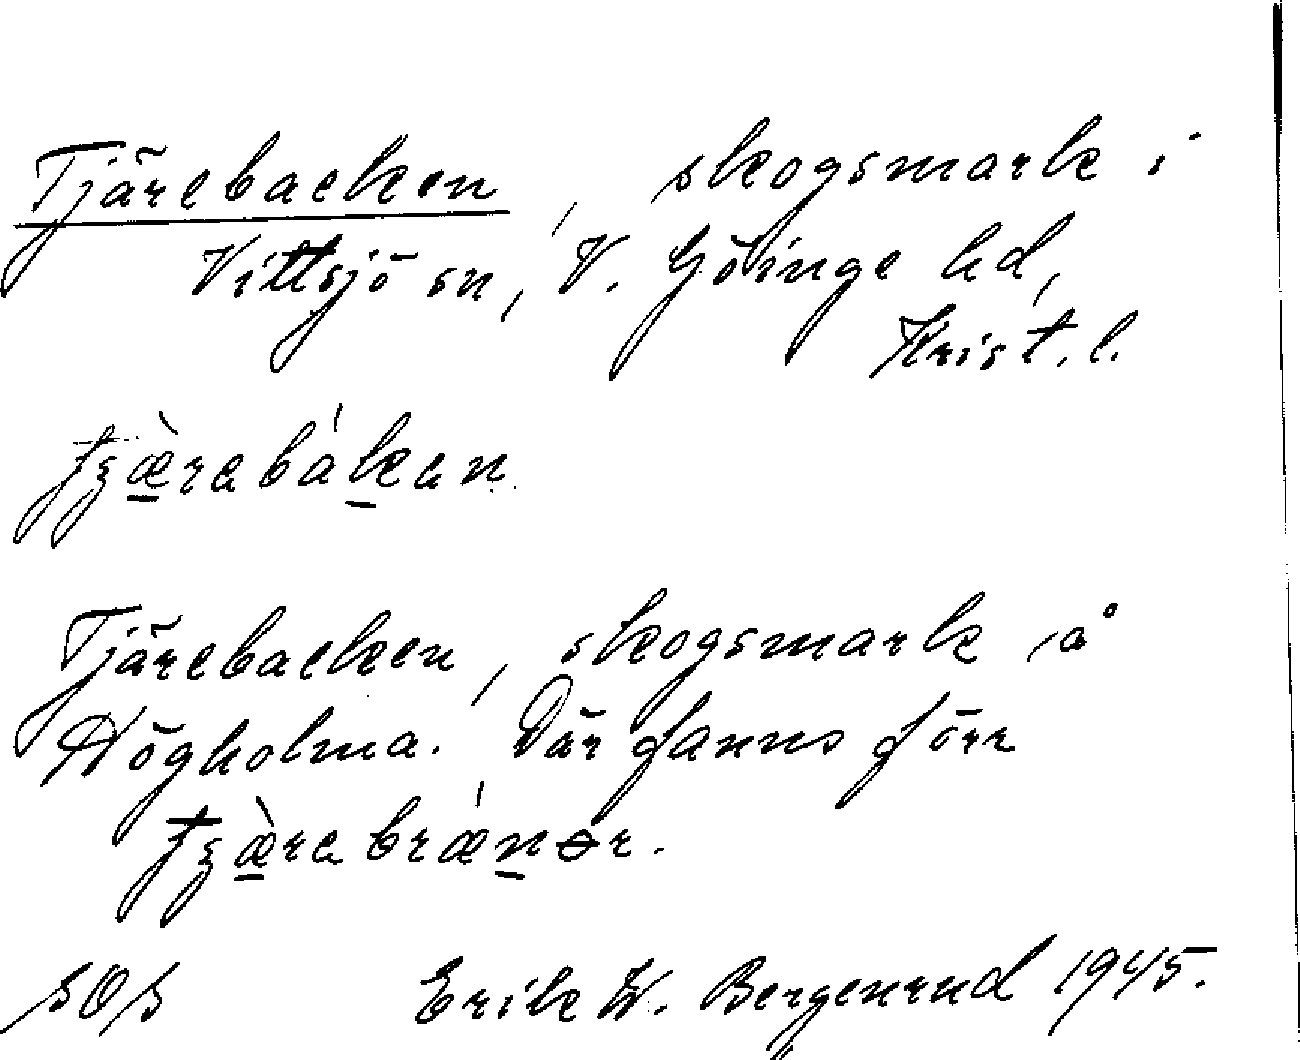 Tjärebacken, skogsmark i
Vittsjö sn, V. Göinge hd,
Krist. l.
Tjärebacken, skogsmark å
Högholma. Där fanns förr
SOS Erik W. Bergenrud 1945.